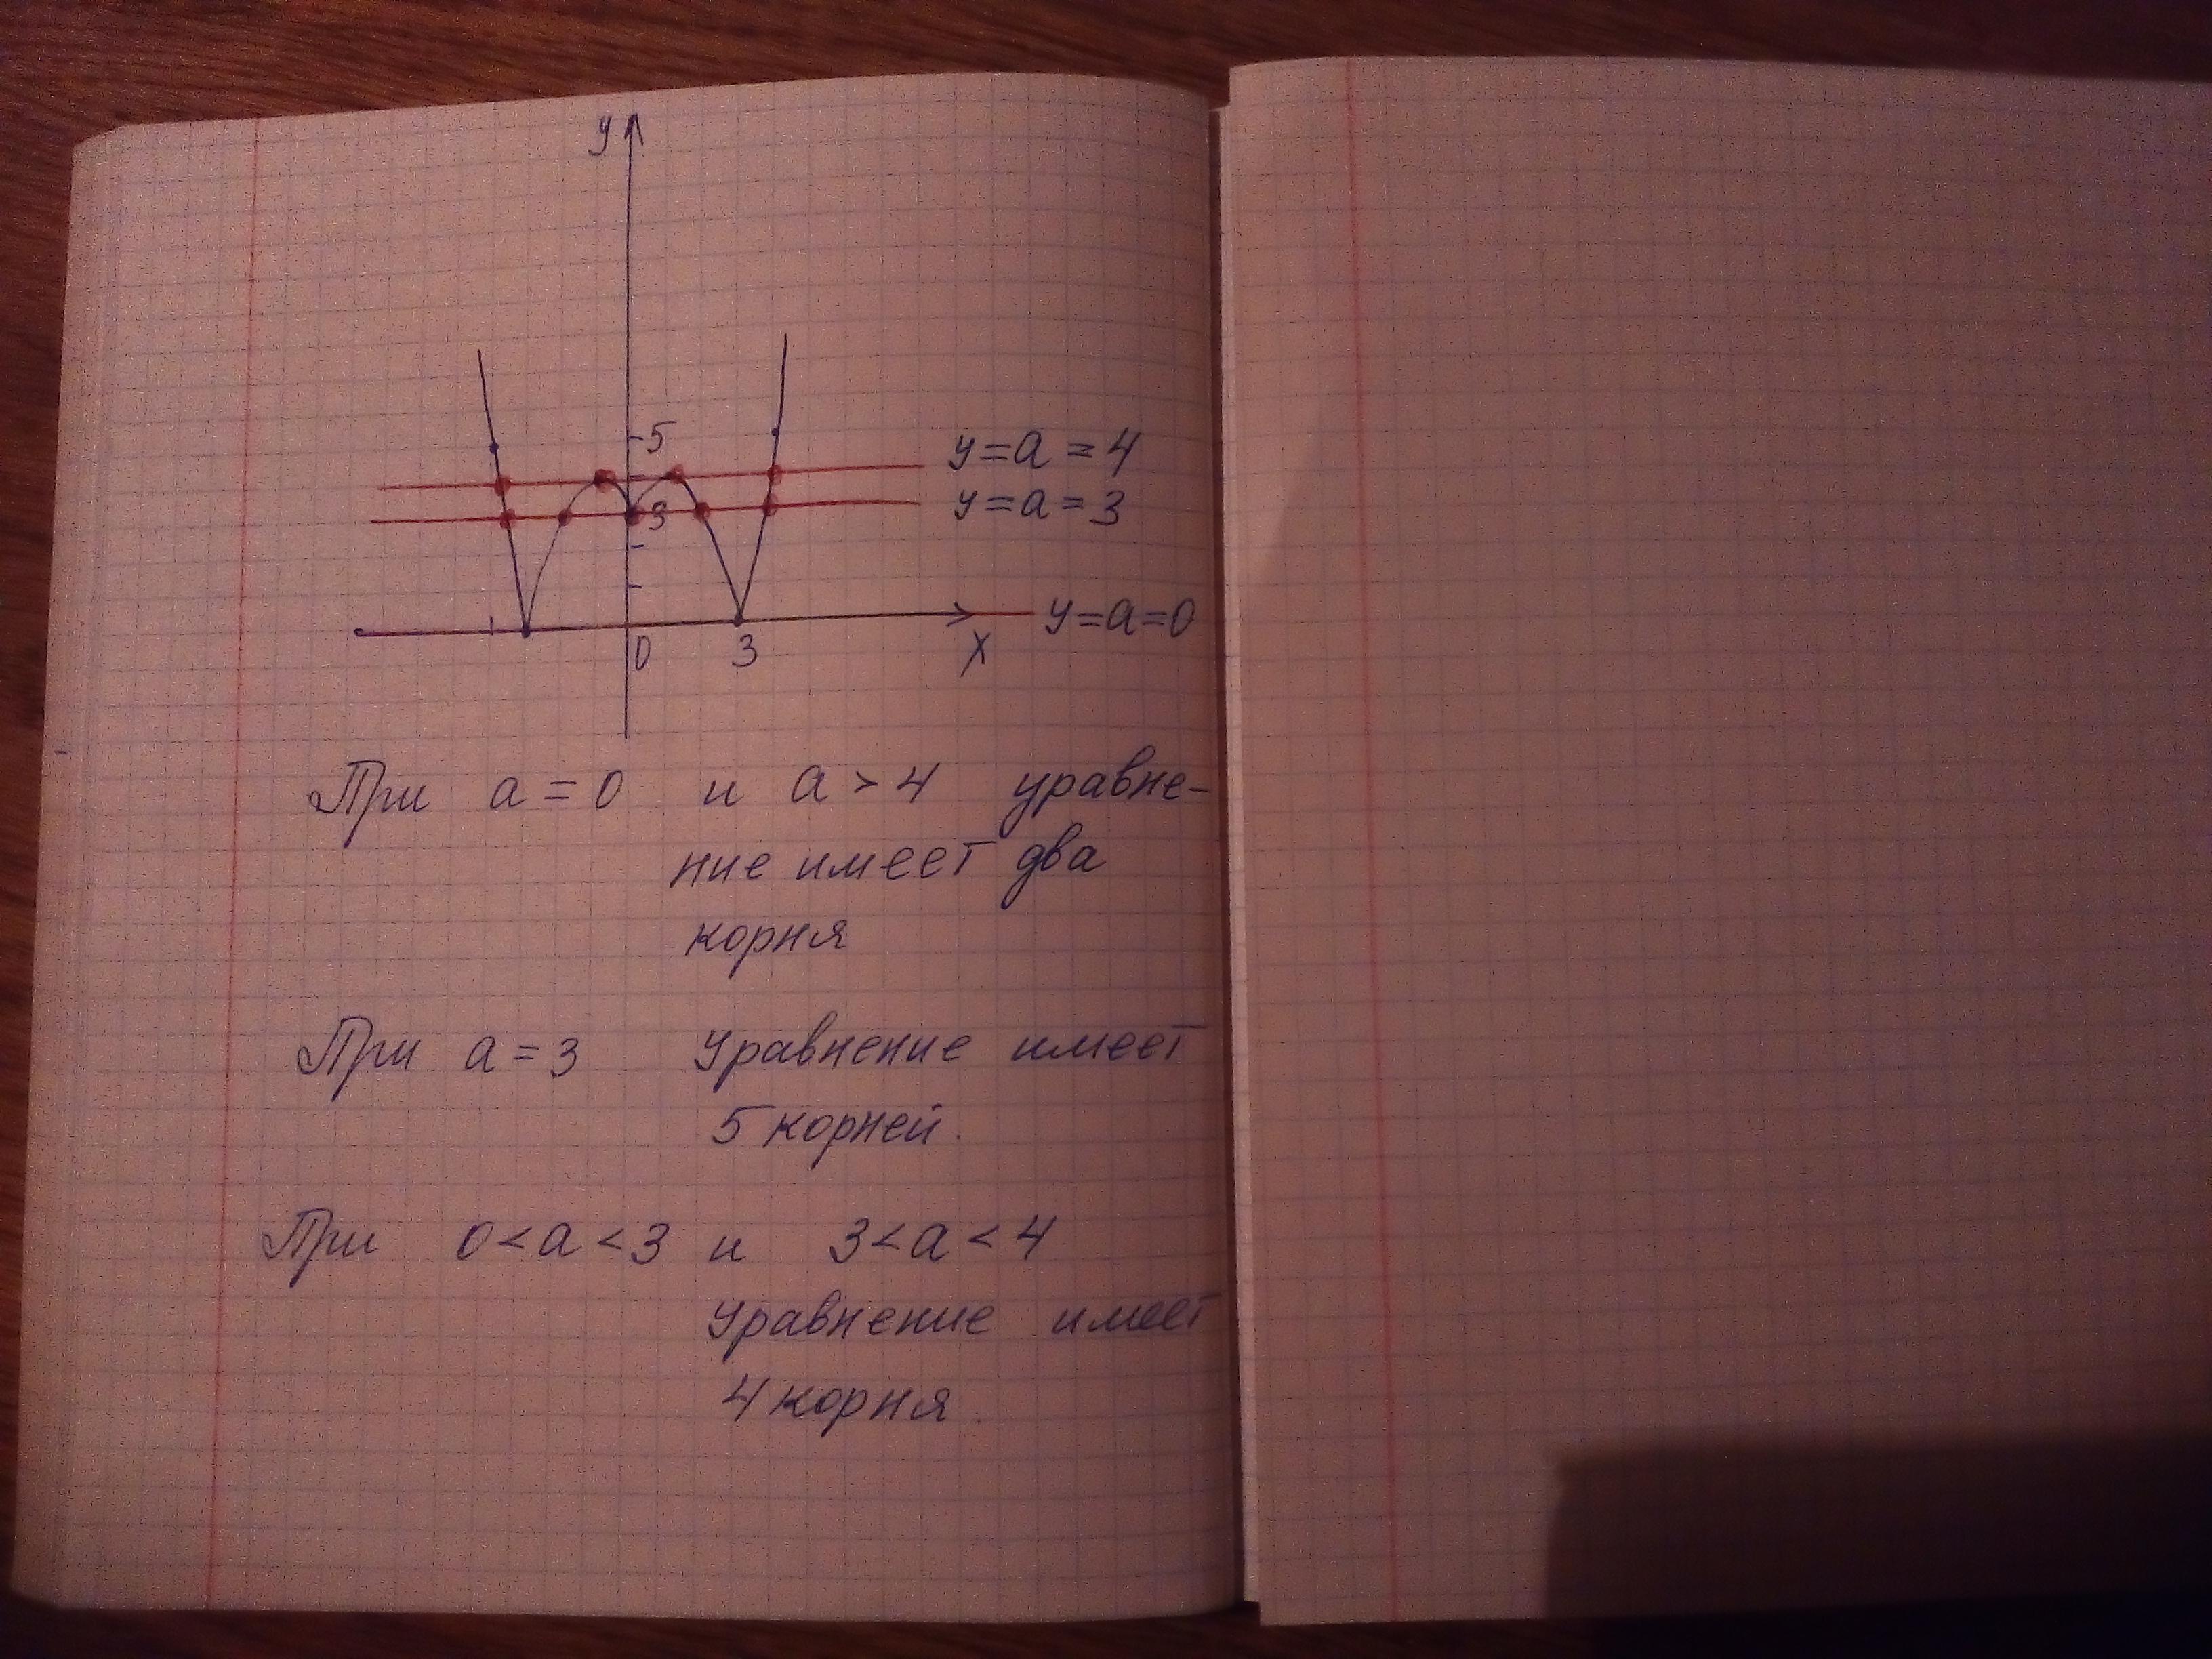 y
5
y = a = 4
3
y = a = 3
y = a = 0
0
3
x
При a = 0 и a > 4 уравне-
ние имеет два
корня
При a = 3 Уравнение имеет
5 корней.
При 0 < a < 3 и 3 < a < 4
Уравнение имеет
4 корня.